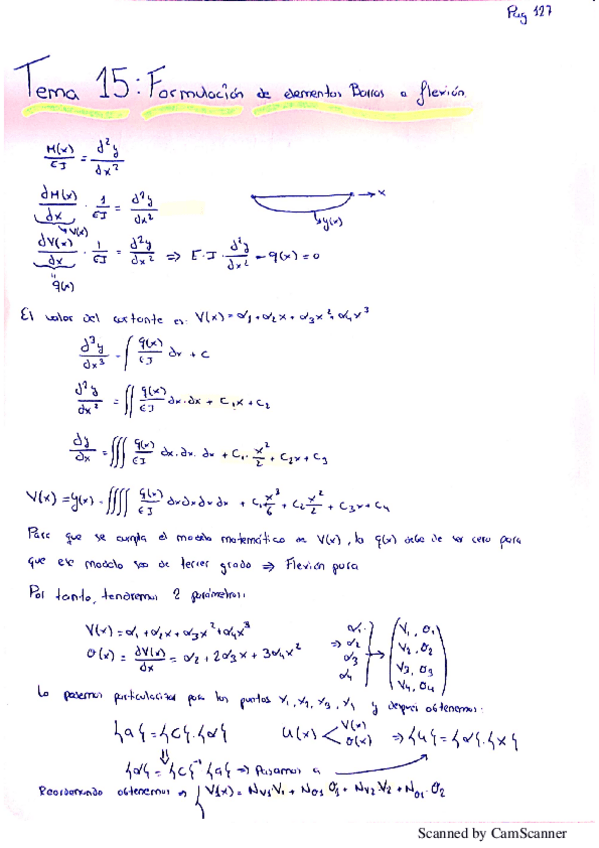 Pag 127
Tema 15: Formulación de elementos Barras a flexión
M(x)/EI = d²y/dx²
dM(x)/dx · 1/EI = d³y/dx²
V(x)
→ x
y(x)
dV(x)/dx · 1/EI = d²y/dx² ⇒ E·I · d²y/dx² - q(x) = 0
"
q(x)
El valor del cortante es: V(x) = α1 + α2x + α3x² + α4x³
d³y/dx³ = ∫ q(x)/EI dx + C
d²y/dx² = ∫∫ q(x)/EI dx·dx + C1x + C2
dy/dx = ∫∫∫ q(x)/EI dx·dx·dx + C1·x²/2 + C2x + C3
V(x) = y(x) = ∫∫∫∫ q(x)/EI dxdxdxdx + C1x³/6 + C2x²/2 + C3x + C4
Para que se cumpla el modelo matemático de V(x), la q(x) debe de ser cero para
que ese modelo sea de tercer grado ⇒ Flexión pura
Por tanto, tendremos 2 parámetros:
V(x) = α1 + α2x + α3x² + α4x³
θ(x) = dV(x)/dx = α2 + 2α3x + 3α4x²
⇒ α1 α2 α3 α4 } → ( V1, θ1
V2, θ2
V3, θ3
V4, θ4 )
Lo podemos particularizar para los puntos x1, x2, x3, x4 y después obtenemos:
{a} = {C}·{α} u(x) < V(x) θ(x) ⇒ {u} = {α}·{x}
{α} = {C}⁻¹{a} ⇒ Pasamos a
Reordenando obtenemos ⇒ { V(x) = Nv1V1 + Nθ1 θ1 + Nv2 V2 + Nθ1·θ2
Scanned by CamScanner